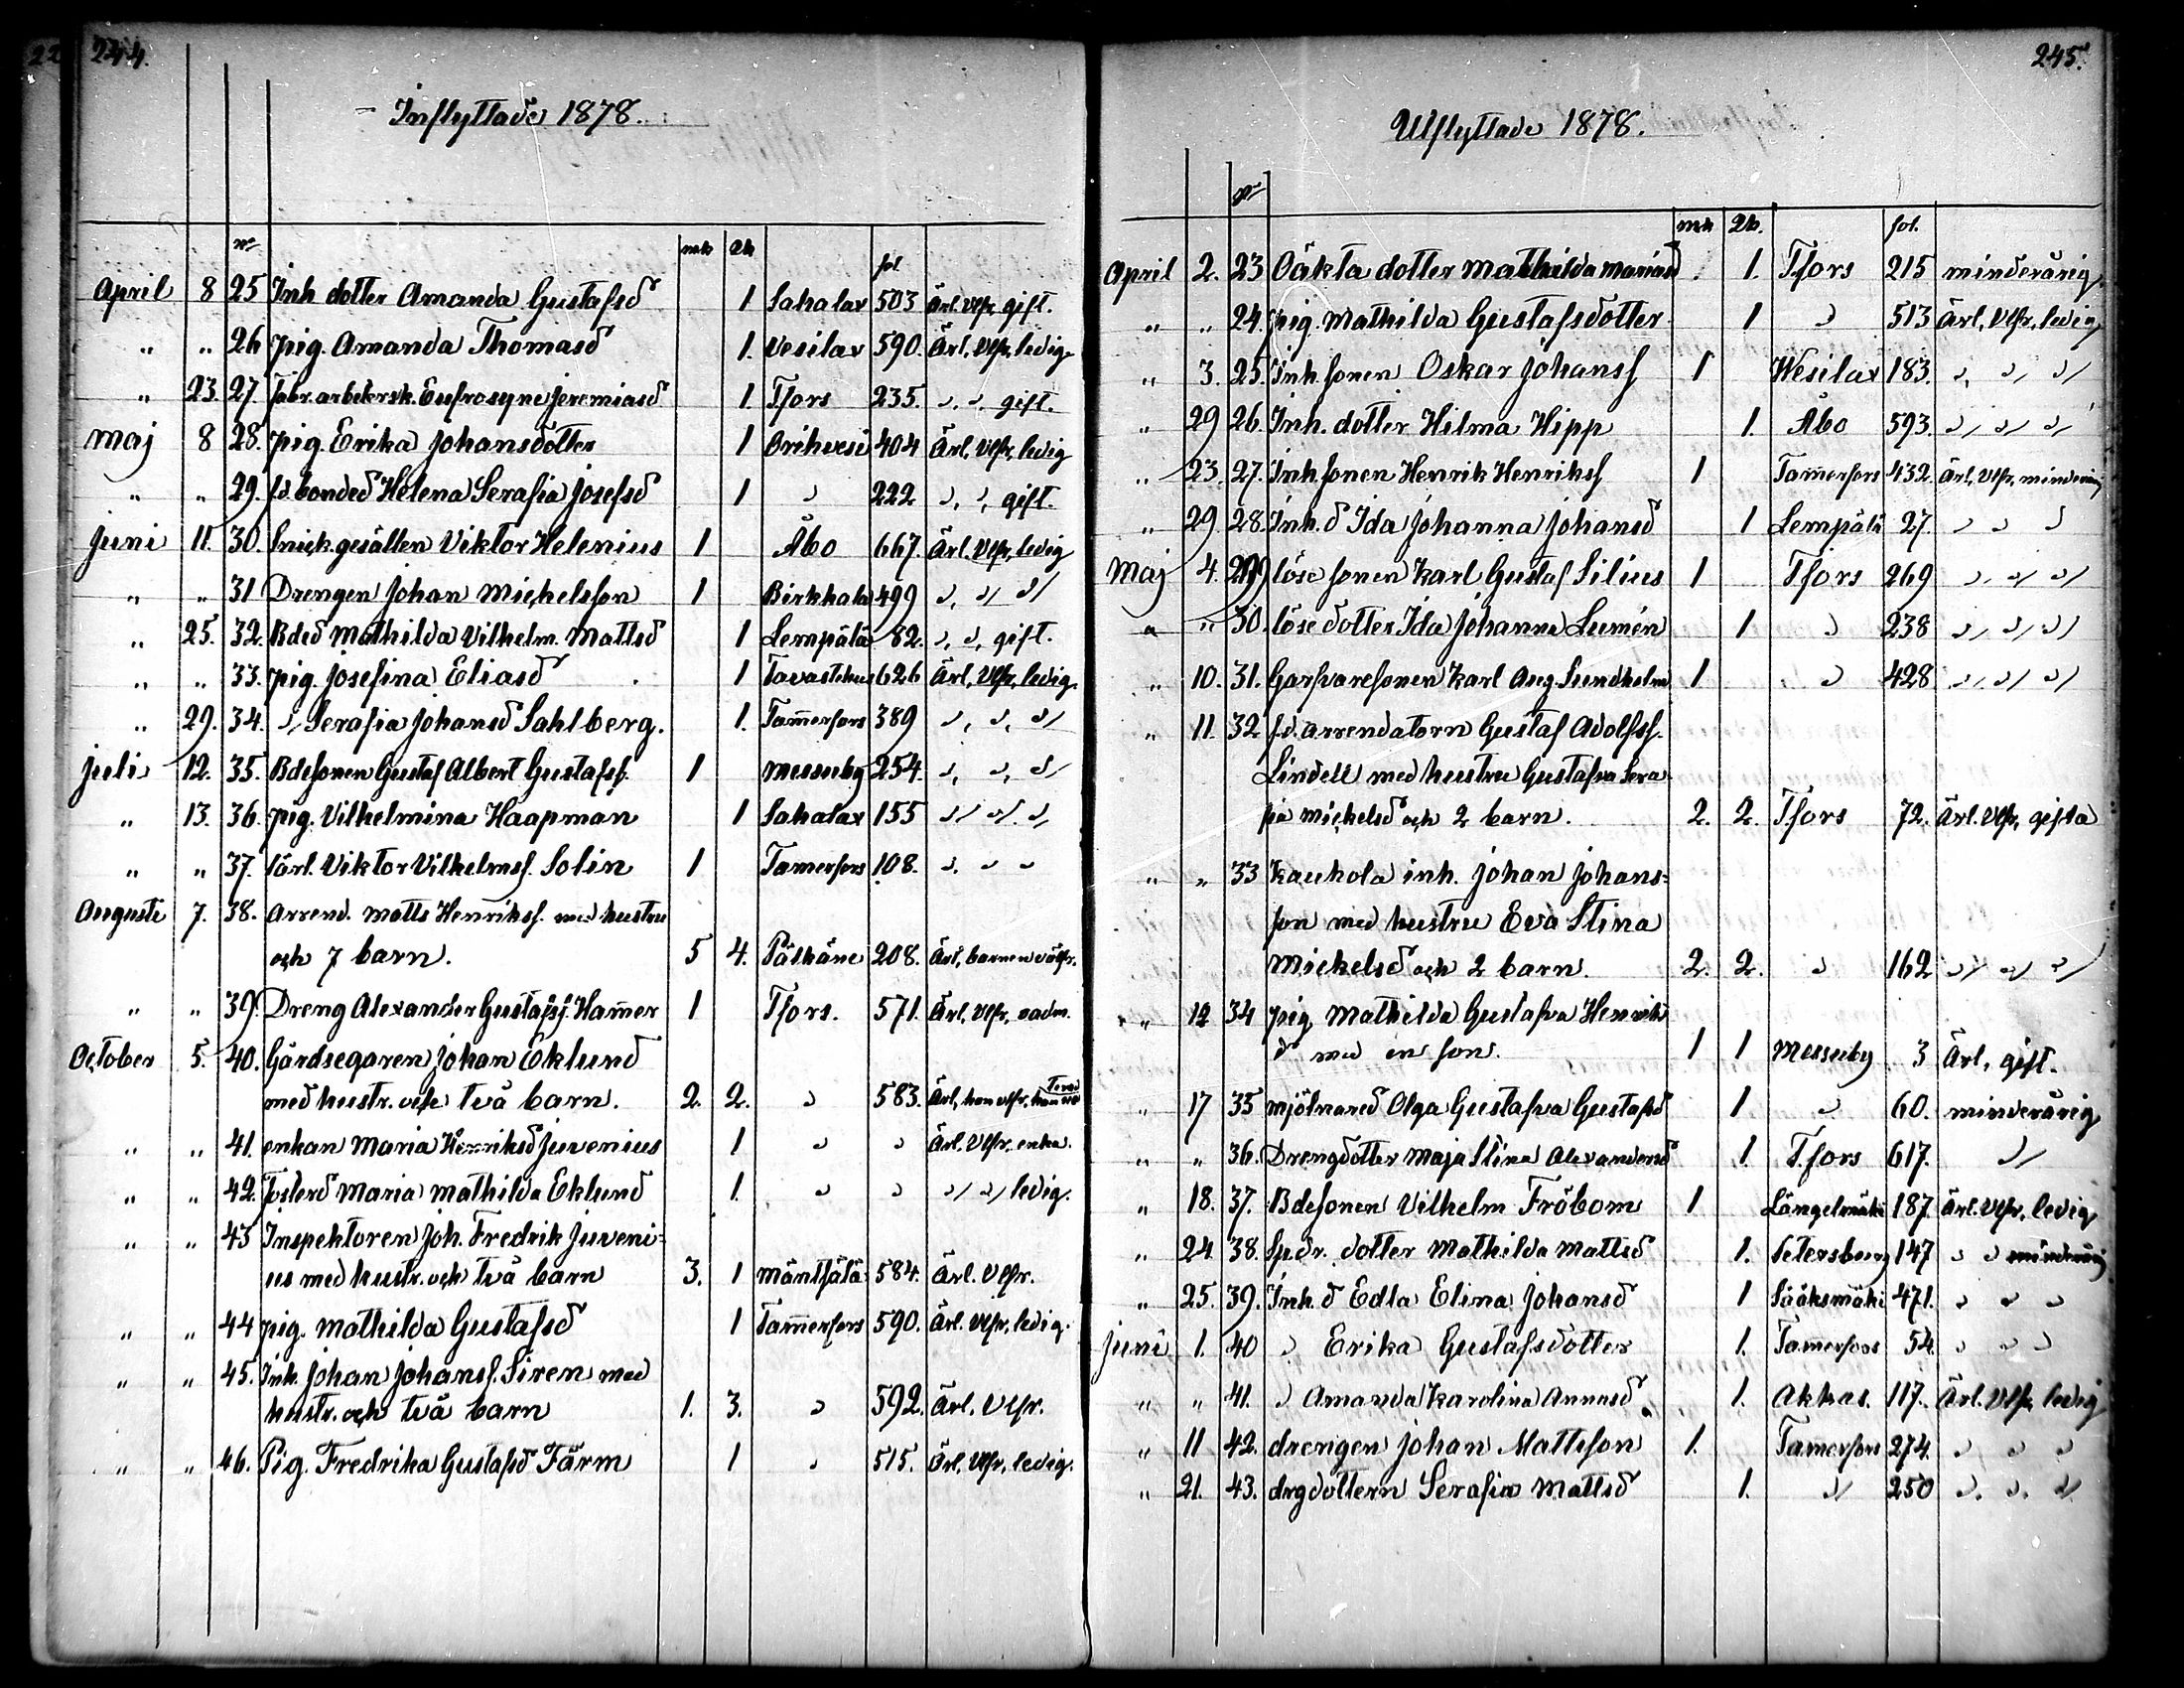 244.
Inflyttade 1878.
No mk Qk fol
April 8 25 Inh dotter Amanda Gustafsd 1 Sahalax 503 Ärl. Vlfr, gift.
" " 26 pig. Amanda Thomasd 1. Vesilax 590. Ärl, Vlfr, ledig
" 23. 27. Fabr. arbetersk. Eufrosyne Jeremiasd 1. Tfors 235. " " gift.
Maj 8 28. pig. Erika Johansdotter 1 Orihvesi 404 Ärl, Vlfr, ledig
" " 29. f.d. bonded Helena Serafia Josefsd 1 " 222 " " gift.
Juni 11. 30. Snick.gesällen Viktor Helenius 1 Åbo 667. Ärl. Vlfr, ledig
" " 31 Drengen Johan Michelsson 1 Birkkala 499 " " "
" 25. 32. Bded Mathilda Vilhelm. Mattsd 1 Lempälä 82. " " gift.
" " 33. pig. Josefina Eliasd 1 Tavastehus 626 Ärl, Vlfr, ledig.
" 29. 34. " Serafia Johansd Sahlberg. 1. Tammerfors 389 " " "
Juli 12. 35. Bdesonen Gustaf Albert Gustafsf. 1 Messuby 254. " " "
" 13. 36. pig. Vilhelmina Haapman 1 Sahalax 155 " " "
" " 37. Lärl. Viktor Vilhelmsf. Solin 1 Tamerfors 108. " " "
Augusti 7. 38. Arrend. Matts Henriksf. med hustru
och 7 barn. 5 4. Pälkäne 208. Ärl, barnen välfr.
" " 39. Dreng Alexander Gustafsf. Hamer 1 Tfors. 571. Ärl, Vlfr, nadm.
October 5. 40. Gårdsegaren Johan Eklund
med hustr. och två barn. 2. 2. " 583. Ärl, han vlfr,
" " 41. enkan Maria Henriksd Juvenius 1 " " Ärl. Vlfr, enka.
" " 42. Fosterd Maria Mathilda Eklund 1. " " " " ledig.
" " 43 Inspektoren Joh. Fredrik Juveni=
us med hustr. och två barn 3. 1 Mäntsälä 584. Ärl. Vlfr.
" " 44 pig. Mathilda Gustafsd 1 Tammerfors 590. Ärl. Vlfr, ledig.
" " 45. Inh. Johan Johansf. Siren med
hustr. och två barn 1. 3. " 592. Ärl. Vlfr.
" " 46. Pig. Fredrika Gustafsd Färm 1 " 515. Ärl, Vlfr, ledig.
245.
Utflyttade 1878.
No mk Qk. fol.
April 2. 23 Oäkta dotter Mathilda Mariasd 1. Tfors 215 minderårig.
" " 24. pig. Mathilda Gustafsdotter 1 " 513 Ärl, Vlfr, ledig
" 3. 25. Inh. sonen Oskar Johansf 1 Wesilax 183. " " "
" 29 26. Inh. dotter Hilma Hipp 1. Åbo 593. " " "
" 23. 27. Inh sonen Henrik Henriksf 1 Tammerfors 432. Ärl, Vlfr, minderårig
" 29. 28. Inh. d Ida Johanna Johansd 1 Lempälä 27. " " "
Maj 4. 29 löse sonen Karl Gustaf Silius 1 Tfors 269 " " "
" " 30. löse dotter Ida Johanna Lumén 1 " 238 " " "
" 10. 31. Garfvaresonen Karl Aug. Sundholm 1 " 428 " " "
" 11. 32 f.d. arrendatorn Gustaf Adolfsf.
Lindell med hustru Gustafva Sera
fia Mickelsd och 2 barn. 2. 2. Tfors 72. Ärl. Vlfr, gifta
" " 33 Kauhola inh. Johan Johans=
son med hustru Eva Stina
Mickelsd och 2 barn. 2. 2. " 162 " " "
" 12 34 pig Mathilda Gustafva Henriks
d med en son. 1 1 Messuby 3 Ärl, gift.
" 17 35 mjölnared Olga Gustafva Gustafsd 1 " 60. minderårig
" " 36. Drengdotter Maja Stina Alexandersd 1. T.fors 617. "
" 18. 37. Bdesonen Vilhelm Fröbom 1 Längelmäki 187 Ärl. Vlfr, ledig
" 24 38. Spdr. dotter Mathilda Mattsd 1. Petersburg 147 " " minderårig
" 25. 39. Inh. d Edla Elina Johansd 1 Sääksmäki 471. " " "
Juni 1. 40 " Erika Gustafsdotter 1. Tamerfors 54. " " "
" " 41. " Amanda Karolina Annasd 1. Akkas. 117. Ärl. Vlfr, ledig
" 11 42. drengen Johan Mattsson 1. Tamerfors 274. " " "
" 21. 43. drgdottern Serafia Mattsd 1. " 250 " " "